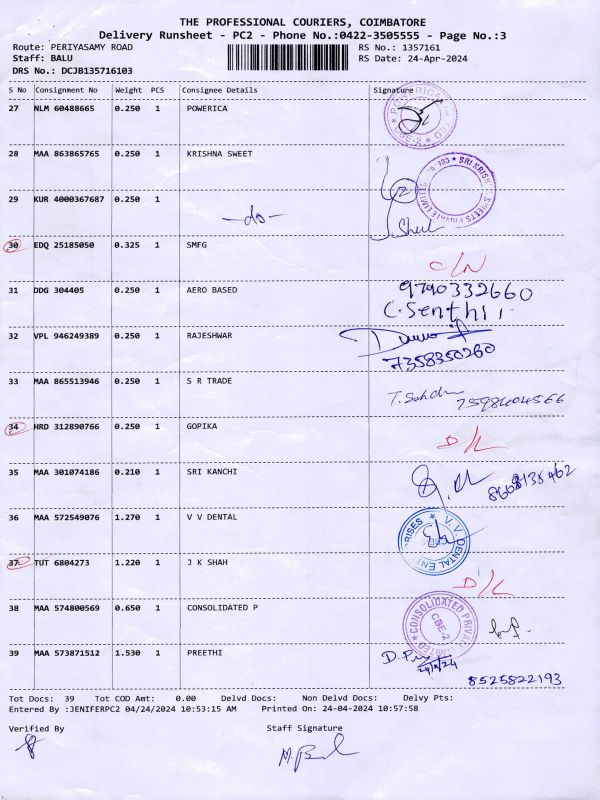 THE PROFESSIONAL COURIERS, COIMBATORE
Delivery Runsheet - PC2 - Phone No.:0422-3505555 - Page No.:3
Route: PERIYASAMY ROAD RS No.: 1357161
Staff: BALU RS Date: 24-Apr-2024
DRS No.: DCJB135716103
S No Consignment No Weight PCS Consignee Details Signature
27 NLM 60488665 0.250 1 POWERICA
POWERICA CBE-2
28 MAA 863865765 0.250 1 KRISHNA SWEET
SRI KRISHNA SWEETS PRIVATE LIMITED
29 KUR 4000367687 0.250 1
—do—
30 EDQ 25185050 0.325 1 SMFG
C/N
31 DDG 304405 0.250 1 AERO BASED 9790332660
C.Senthil
32 VPL 946249389 0.250 1 RAJESHWAR
7358350260
33 MAA 865513946 0.250 1 S R TRADE
7598404566
34 HRD 312890766 0.250 1 GOPIKA
D/L
35 MAA 301074186 0.210 1 SRI KANCHI
8608135462
36 MAA 572549076 1.270 1 V V DENTAL
V.V. DENTAL ENTERPRISES
37 TUT 6804273 1.220 1 J K SHAH
D/L
38 MAA 574800569 0.650 1 CONSOLIDATED P
CONSOLIDATED PRIVATE LIMITED CBE-2
39 MAA 573871512 1.530 1 PREETHI
8525822193
Tot Docs: 39 Tot COD Amt: 0.00 Delvd Docs: Non Delvd Docs: Delvy Pts:
Entered By :JENIFERPC2 04/24/2024 10:53:15 AM Printed On: 24-04-2024 10:57:58
Verified By Staff Signature